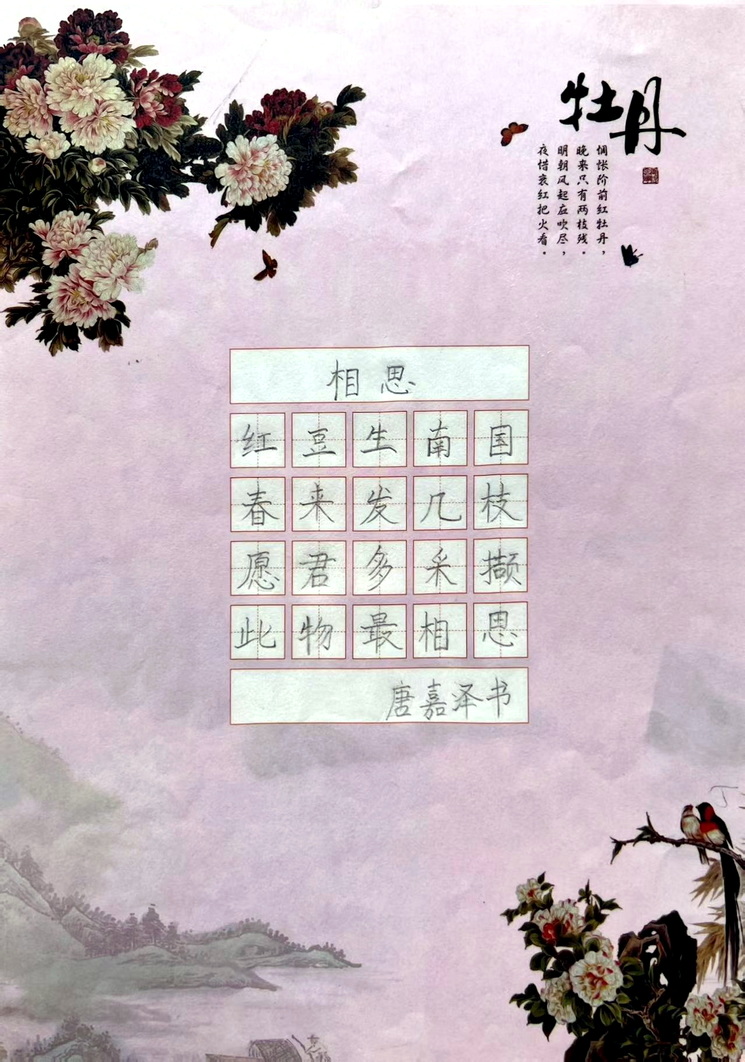 牡丹
惆怅阶前红牡丹，
晚来只有两枝残。
明朝风起应吹尽，
夜惜衰红把火看。
相思
红豆生南国
春来发几枝
愿君多采撷
此物最相思
唐嘉泽书